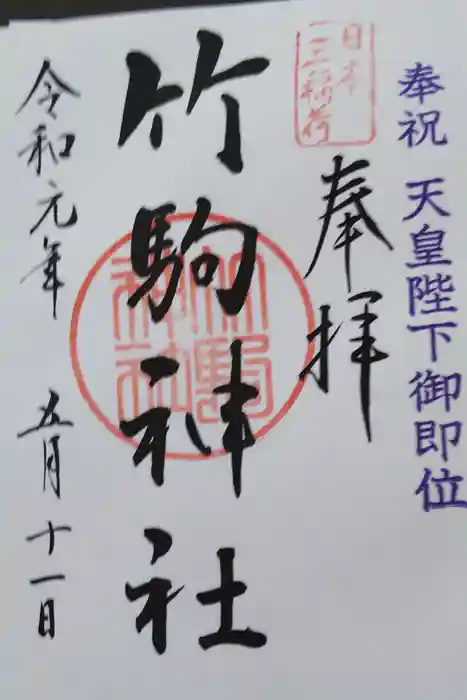 奉祝 天皇陛下御即位
日本
三稲荷
奉拝
竹駒神社
竹駒
神社
令和元年 五月十一日